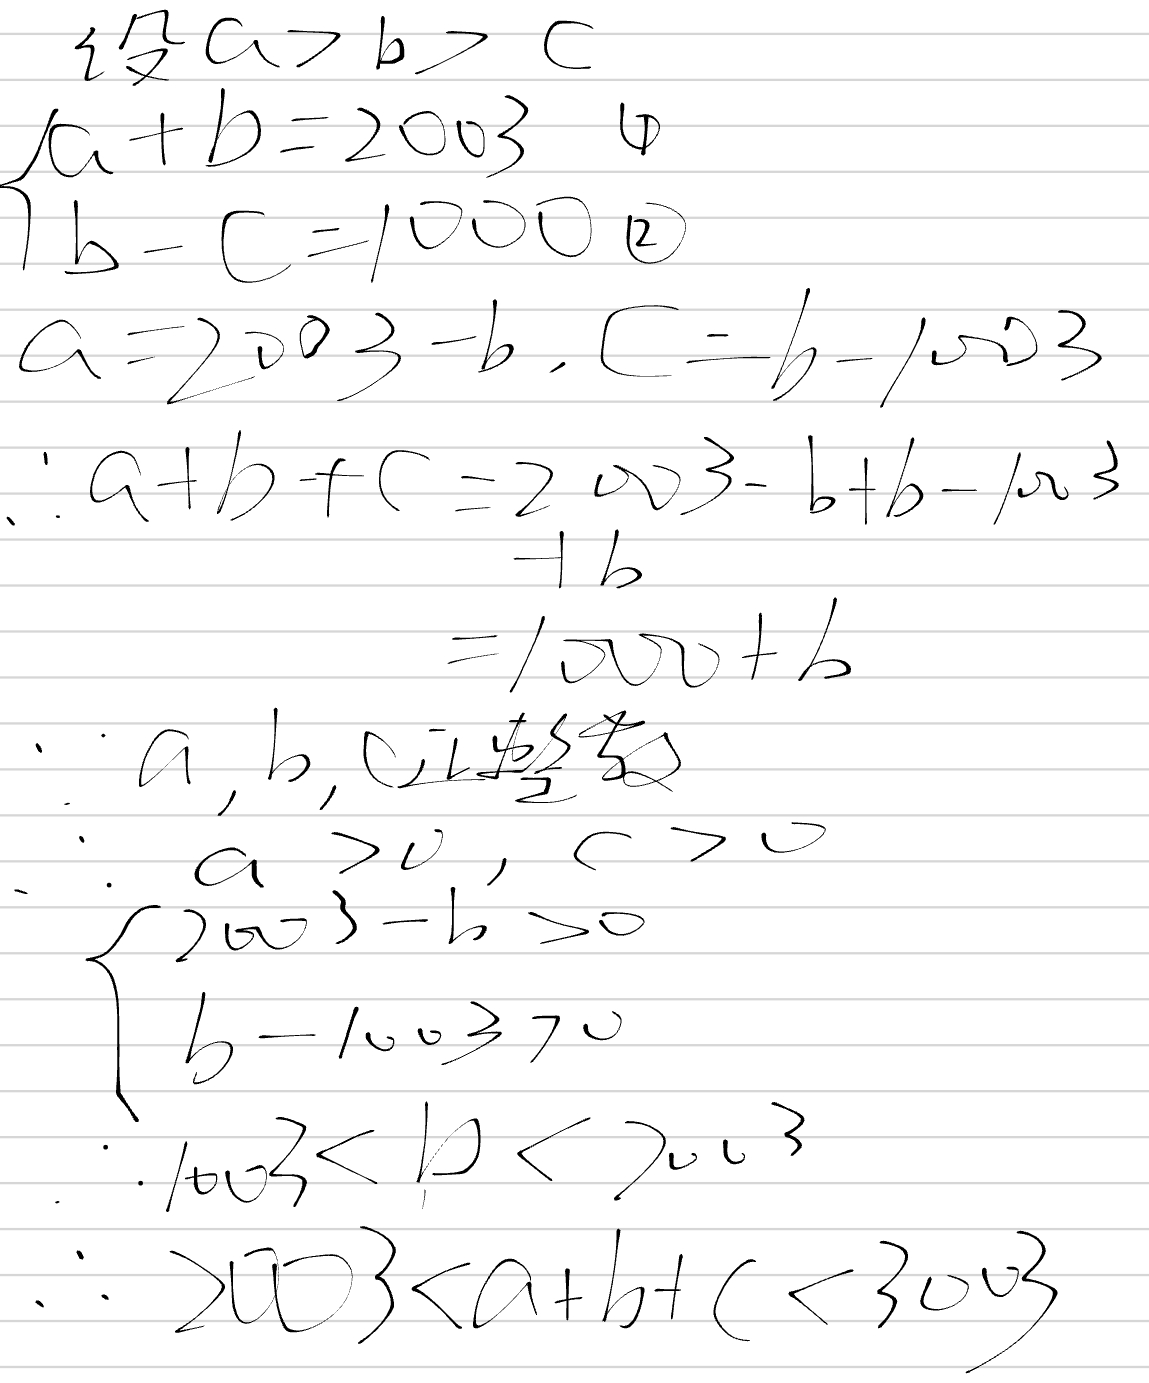 设a>b>c
a+b=2003 ①
b-c=1000 ②
a=2003-b, c=b-1003
∴a+b+c=2003-b+b-1003
+b
=1000+b
∵a,b,c正整数
∴a>0, c>0
2003-b>0
b-1003>0
∴1003<b<2003
∴2003<a+b+c<3003